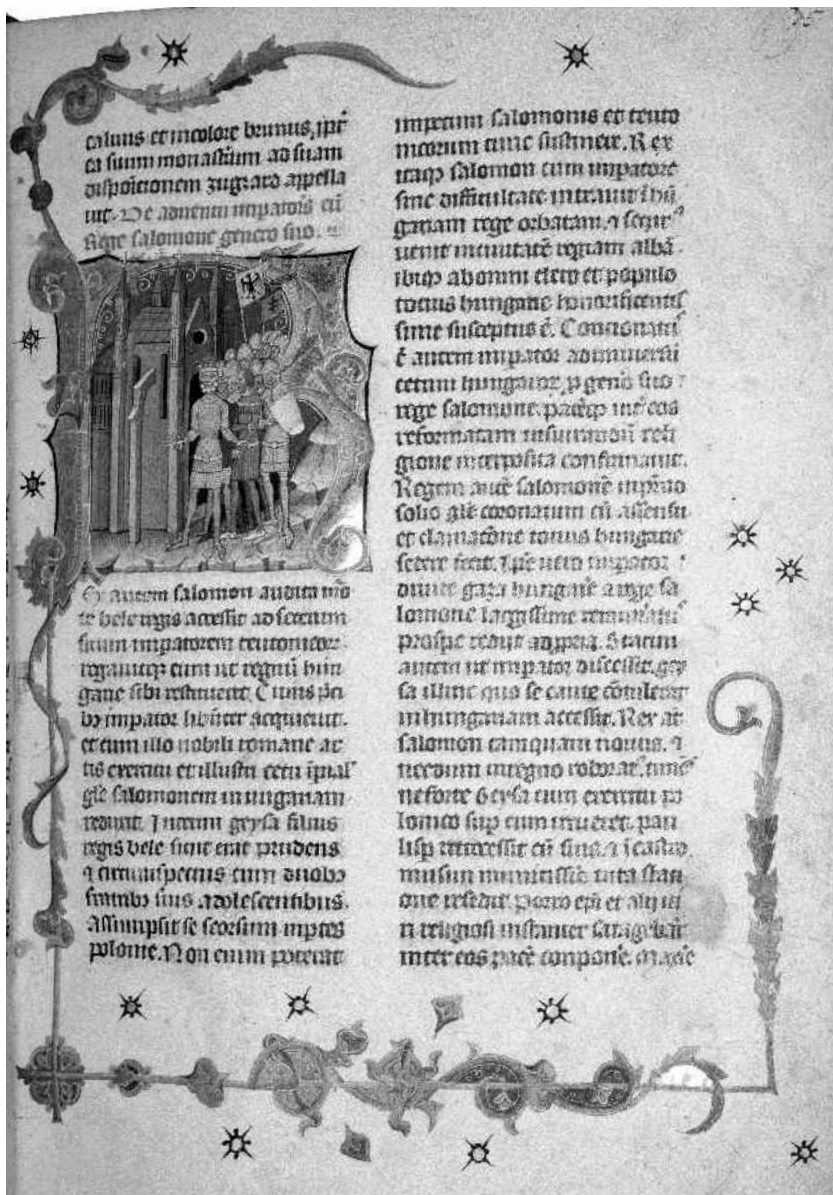 caluus et in colore brunus, ipē
ea suum monastīum ad suam
dispoīcionem zugzard appella
uit. De aduentu impatoris cū
Rege salomone genero suo.
autem salomon audita mō
te bele regis accessit ad socerum
suum impatorem teutonicor
rogauitqꝫ eum ut regnū hun
garie sibi restitueret. Cuius p̄ci
bꝫ impator libnter acqueuit.
et cum illo nobili romane ar
tis exercitu et illustri cetu īpial
gl̄e salomonem in ungariam
reduxit. Interim geysa filius
regis bele sicut erat prudens
⁊ circumspectus cum duobꝫ
fratribꝫ suis adolescentibus.
assumpsit se seorsum in ptes
polonie. Non enim poterat
impetum salomonis et teuto
nicorum tunc sustinere. Rex
itaqꝫ salomon cum impatore
sine difficultate intrauit ī hū
gariam rege orbatam. ⁊ sequr
uenit in ciuitatē regiam albā
ibiqꝫ ab omni clero et populo
tocius hungarie honorificentis
sime susceptus ē. Concionatus
ē autem impator ad uniuersū
cetum hungaroꝝ, p genō suo
rege salomone. pacēqꝫ int̄ eos
reformatam iusiurandū reli
gione interposita confirmauit.
Regem autē salomonē in p̄rno
solio gl̄e coronatum cū assensu
et clamacōne tocius hungarie
sedere fecit. Ipē uero impator
diuite gaza hungarie a rege sa
lomone largissime remuneratus
prospe rediit ad ppria. Statim
autem ut impator discessit. gey
sa illinc quo se caute cōtulerat
in hungariam accessit. Rex aūt
salomon tamquam nouus. ⁊
necdum in regno roborat'. timēs
ne forte Geysa cum exercitu po
lonico sup eum irrueret. pau
lisp recessit cū suis. ⁊ ī castro
musun munitissīe tuta stati
one resedit. Porro epī et alij ui
ri religiosi instanter satagebāt
inter eos pacē conponere. maxīe